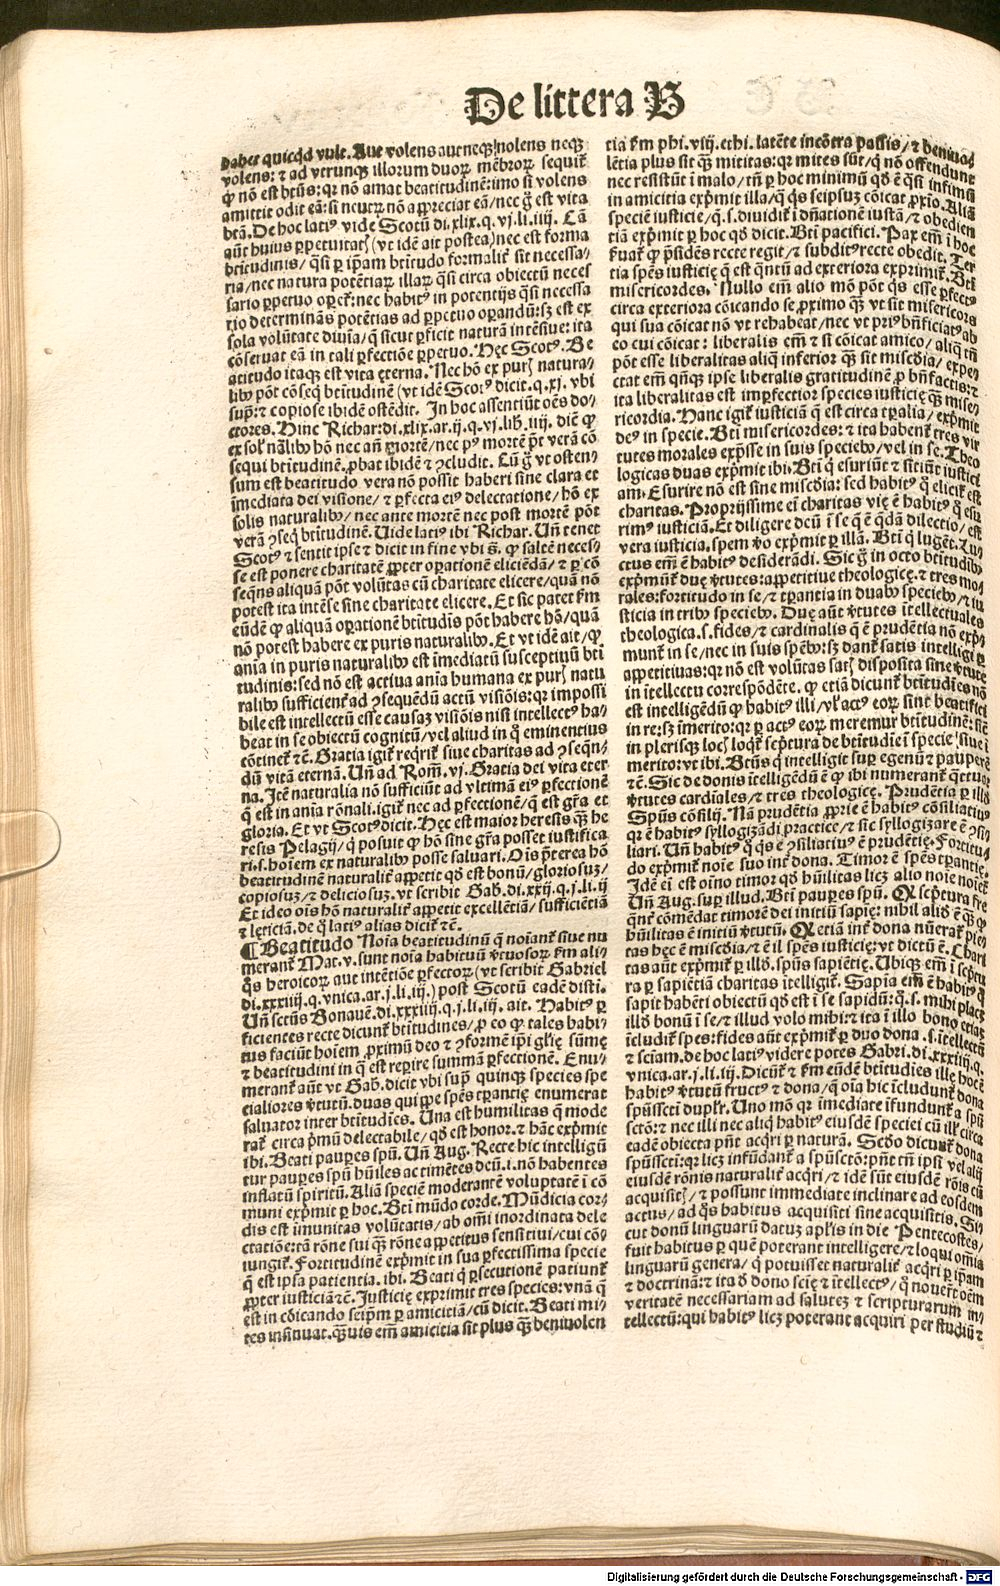 De littera B
habet quicqd vult. Aut volens aut neqꝫ nolens neqꝫ
volens: ⁊ ad vtrunqꝫ illorum duoꝝ mẽbroꝝ sequit᷑
ꝙ nõ est bt̃us: qꝛ nõ amat beatitudinẽ: imo si volens
amittit odit eã: si neutꝝ nõ appreciat eã/ nec g̃ est vita
bt̃a. De hoc latiꝰ vide Scotũ di. xlix. q. vj. li. iiij. Cã
aũt huius ꝑpetuitatꝭ (vt idẽ ait postea) nec est forma
bt̃itudinis/ q̃si ꝑ ip̃am bt̃itudo formalit᷑ sit necessa/
ria/ nec natura potẽtiaꝝ illaꝝ q̃si circa obiectũ neces
sario ꝑpetuo oꝑet᷑: nec habitꝰ in potentijs q̃si necessa
rio determinãs potẽtias ad ꝑpetuo oꝑandũ: sꝫ est ex
sola volũtate diuĩa/ q̃ sicut ꝑficit naturã intẽsiue: ita
cõseruat eã in tali ꝑfectiõe ꝑpetuo. Hęc Scotꝰ. Be
atitudo itaqꝫ est vita ęterna. Nec hõ ex purꝭ natura/
libꝰ põt cõseq̃ bt̃itudinẽ (vt idẽ Scotꝰ dicit. q. xj. vbi
supͣ: ⁊ copiose ibidẽ ostẽdit. In hoc assentiũt oẽs do/
ctores. Hinc Richar: di. xlix. ar. ij. q. vj. lib̃. iiij. dic̃ ꝙ
ex solꝭ nãlibꝰ hõ nec añ mortẽ/ nec pꝰ mortẽ põt verã cõ
sequi bt̃itudinẽ. ꝓbat ibidẽ ⁊ ꝯcludit. Cũ g̃ vt osten/
sum est beatitudo vera nõ possit haberi sine clara et
ĩmediata dei visione/ ⁊ ꝑfecta eiꝰ delectatione/ hõ ex
solis naturalibꝰ/ nec ante mortẽ nec post mortẽ põt
verã ꝯseq̃ bt̃itudinẽ. Uide latiꝰ ibi Richar. Uñ tenet
Scotꝰ ⁊ sentit ipse ⁊ dicit in fine vbi s̃. ꝙ saltẽ neces/
se est ponere charitatẽ ꝓpter oꝑationẽ eliciẽdã/ ⁊ ꝑ cõ
seq̃ns aliquã põt volũtas cũ charitate elicere/ quã nõ
potest ita intẽse sine charitate elicere. Et sic patet ẽm
eũdẽ ꝙ aliquã oꝑationẽ bt̃itudis põt habere hõ/ quã
nõ potest habere ex puris naturalibꝰ. Et vt idẽ ait/ ꝙ
anĩa in puris naturalibꝰ est ĩmediatũ susceptiuũ bt̃i
tudinis: sed nõ est actiua anĩa humana ex purꝭ natu
ralibꝰ sufficient᷑ ad ꝯsequẽdũ actũ visiõis: qꝛ impossi
bile est intellectũ esse causaꝫ visiõis nisi intellectꝰ ha/
beat in se obiectũ cognitũ/ vel aliud in q̊ eminentius
cõtinet᷑ ⁊c̃. Gratia igit᷑ reqͥrit᷑ siue charitas ad ꝯseqñ/
dũ vitã eternã. Uñ ad Rom̃. vj. Gratia dei vita eter
na. Itẽ naturalia nõ sufficiũt ad vltimã eiꝰ ꝑfectionẽ
q̃ est in anĩa rõnali. igit᷑ nec ad ꝑfectionẽ/ q̃ est gr̃a et
gloria. Et vt Scotꝰ dicit. Hęc est maior heresis qͣꝫ he
resis Pelagij/ q̃ posuit ꝙ hõ sine gr̃a posset iustifica
ri. s. hoĩem ex naturalibꝰ posse saluari. Oĩs p̃terea hõ
beatitudinẽ naturalit᷑ appetit qd̃ est bonũ/ gloriosuꝫ/
copiosuꝫ/ ⁊ deliciosuꝫ. vt scribit Gab̃. di. xxij. q. j. li. ij
Et ideo oĩs hõ naturalit᷑ appetit excellẽtiã/ sufficiẽtiã
⁊ lęticiã. de q̃ latiꝰ alias dicit᷑ ⁊c̃.
¶ Beatitudo Noĩa beatitudinũ q̃ noĩant᷑ siue nu
merant᷑ Mat. v. sunt noĩa habituũ v̓tuosoꝝ ẽm ali/
q̊s heroicoꝝ aut intẽtiõe ꝑfectoꝝ (vt scribit Gabriel
di. xxxiiij. q. vnica. ar. j. li. iij.) post Scotũ eadẽ disti.
Uñ sctũs Bonauẽ. di. xxxiiij. q. j. li. iij. ait. Habitꝰ ꝑ
ficientes recte dicunt᷑ bt̃itudines/ ꝓ eo ꝙ tales habi/
tus faciũt hoĩem ꝓximũ deo ⁊ ꝯformẽ ip̃i gl̃ię sũmę
⁊ beatitudini in q̃ est reꝑire summã ꝑfectionẽ. Enu/
merant᷑ aũt vt Gab̃. dicit vbi supͣ quinqꝫ species spe
cialiores v̓tutũ. duas qui ppe spẽs tꝑantię enumerat
saluator inter bt̃itudĩes. Una est humilitas q̃ mode
rat᷑ circa pͥmũ delectabile/ qd̃ est honor. ⁊ hãc exp̃mit
ibi. Beati pauꝑes spũ. Uñ Aug. Recte hic intelligũ
tur pauꝑes spũ hũiles ac timẽtes deũ. i. nõ habentes
inflatũ spiritũ. Aliã speciẽ moderantẽ voluptatẽ ĩ cõ
muni exp̃mit ꝑ hoc. Bt̃i mũdo corde. Mũdicia cor/
dis est ĩmunitas volũtatis/ ab om̃i inordinata dele
ctatiõe: tã rõne sui qͣꝫ rõne appetitus sensitiui/ cui cõ/
iungit᷑. Fortitudinẽ exp̃mit in sua ꝑfectissima specie
q̃ est ipsa patientia. ibi. Beati q̃ ꝑsecutionẽ patiunt᷑
ꝓpter iusticiã ⁊c̃. Justicię exprimit tres species: vnã q̃
est in cõicando seip̃m ꝑ amicitiã/ cũ dicit. Beati mi/
tes insinuat. qͣꝫuis em̃ amicitia sit plus qͣꝫ beniuolen
tia ẽm phi. viij. ethi. latẽte incõtra passis/ ⁊ beniuo/
lẽtia plus sit qͣꝫ mititas: qꝛ mites sũt/ q̃ nõ offendunt
nec resistũt ĩ malo/ tñ ꝑ hoc minimũ qd̃ ẽ q̃si infimũ
in amicitia exp̃mit illa/ q̃ q̃s seipsuꝫ cõicat ꝓxĩo. Aliã
speciẽ iusticie/ q̃. s. diuidit᷑ ĩ dñationẽ iustã/ ⁊ obedien
tiã exp̃mit ꝑ hoc qd̃ dicit. Bt̃i pacifici. Pax em̃ ĩ hoc
ẜuat᷑ ꝙ p̃sidẽs recte regit/ ⁊ subditꝰ recte obedit. Ter
tia spẽs iusticię q̃ est q̃ntũ ad exteriora exprimit᷑. Bt̃i
misericordes. Nullo em̃ alio mõ põt q̃s esse ꝑfectꝰ
circa exteriora cõicando se ꝓximo qͣꝫ vt sit misericors
qui sua cõicat nõ vt rehabeat/ nec vt priꝰ bñficiatꝰ ab
eo cui cõicat: liberalis em̃ ⁊ si cõicat amico/ aliq̃ tñ
põt esse liberalitas aliq̃ inferior qͣꝫ sit misc̃dia/ expe/
ctat em̃ qñqꝫ ipse liberalis gratitudinẽ ꝓ bñfactis: ⁊
ita liberalitas est imꝑfectior species iusticię qͣꝫ mise/
ricordia. Hanc igit᷑ iusticiã q̃ est circa tꝑalia/ exp̃mit
deꝰ in specie. Bt̃i misericordes: ⁊ ita habent᷑ tres vir
tutes morales exp̃sse in suis speciebꝰ/ vel in se. Theo
logicas duas exp̃mit ibi. Bt̃i q̃ esuriũt ⁊ sitiũt iustici
am. Esurire nõ est sine misc̃dia: sed habitꝰ q̃ elicit᷑ est
charitas. Propriissime eĩ charitas vię ẽ habitꝰ q̃ esu
rimꝰ iusticiã. Et diligere deũ ĩ se q̃ ẽ q̃dã dilectio/ est
vera iusticia. spem v̓o exp̃mit ꝑ illã. Bt̃i q̃ lugẽt. Lu/
ctus em̃ ẽ habitꝰ desiderãdi. Sic g̃ in octo bt̃itudibꝰ
exp̃munt᷑ duę v̓tutes: appetitiue theologicę. ⁊ tres mo/
rales: fortitudo in se/ ⁊ tꝑantia in duabꝰ speciebꝰ/ ⁊ iu
sticia in tribꝰ speciebꝰ. Duę aũt v̓tutes ĩtellectuales
theologica. s. fides/ ⁊ cardinalis q̃ ẽ prudẽtia nõ exp̃
munt᷑ in se/ nec in suis spẽbꝰ: sꝫ dant᷑ satis intelligi ꝑ
appetitiuas: qꝛ nõ est volũtas satꝭ disposita sine v̓tute
in ĩtellectu correspõdẽte. ꝙ etiã dicunt᷑ bt̃itudĩes nõ
est intelligẽdũ ꝙ habitꝰ illi/ vl̓ actꝰ eoꝝ sint beatifici
in re: sꝫ ĩmerito: qꝛ ꝑ actꝰ eoꝝ meremur bt̃itudinẽ: sic̃
in plerisqꝫ locꝭ loqͥt᷑ scp̃tura de bt̃itudĩe ĩ specie/ siue ĩ
merito: vt ibi. Bt̃us q̃ intelligit suꝑ egenũ ⁊ pauperẽ
⁊c̃. Sic de donis ĩtelligẽdũ ẽ ꝙ ibi numerant᷑ q̃tuor
v̓tutes cardiales/ ⁊ tres theologicę. Prudẽtia ꝑ illd̃
Spũs cõsilij. Nã prudẽtia ꝓprie ẽ habitꝰ cõsiliatiuꝰ
qꝛ ẽ habitꝰ syllogizãdi practice/ ⁊ sic syllogizare ẽ ꝯsi
liari. Uñ habitꝰ q̃ q̃s ẽ ꝯsiliatiuꝰ ẽ prudẽtię. Fortitu
do exp̃mit᷑ noĩe suo int᷑ dona. Timor ẽ spẽs tꝑantię.
Idẽ eĩ est oĩno timor qd̃ hũilitas licꝫ alio noĩe noĩet᷑
Uñ Aug. suꝑ illud. Bt̃i pauꝑes spũ. Qꝛ scp̃tura fre
q̃nt᷑ cõmẽdat timorẽ dei initiũ sapię: nihil aliđ ẽ qͣꝫ ꝙ
hũilitas ẽ initiũ v̓tutũ. Qꝛ etiã int᷑ dona nũerat᷑ pie/
tas hęc ẽ misc̃dia/ ⁊ ẽ il spẽs iusticię: vt dictũ ẽ. Chari
tas aũt exp̃mit᷑ ꝑ illđ. spũs sapiẽtię. Ubiqꝫ em̃ ĩ scp̃tu
ra ꝑ sapiẽtiã charitas ĩtelligit᷑. Sapĩa em̃ ẽ habitꝰ q̃
sapit habẽti obiectũ qd̃ est ĩ se sapidũ: q̃. s. mihi placꝫ
illđ bonũ ĩ se/ ⁊ illud volo mihi: ⁊ ita ĩ illo bono etiaꝫ
ĩcludit᷑ spes: fides aũt exp̃mit᷑ ꝑ duo dona. s. ĩtellectũ
⁊ sciam. de hoc latiꝰ videre potes Gabri. di. xxxiiij. q.
vnica. ar. j. li. iij. Dicũt᷑ ⁊ ẽm eũdẽ bt̃itudĩes illę hoc ẽ
habitꝰ v̓tutũ fructꝰ ⁊ dona/ q̃ oĩa hic ĩcludunt᷑ dona
spũsscti dupl̓r. Uno mõ qꝛ ĩmediate ĩfundunt᷑ a spũ
sctõ: ⁊ nec illi nec aliq̃ habitꝰ eiusdẽ speciei cũ ill̓ circa
eadẽ obiecta pñt acq̃ri ꝑ naturã. Scđo dicunt᷑ dona
spũsscti: qꝛ licꝫ infũdant᷑ a spũsctõ: pñt tñ ipsi vel alij
eiusdẽ rõnis naturalit᷑ acq̃ri/ ⁊ idẽ sũt eiusdẽ rõis cũ
acquisitꝭ/ ⁊ possunt immediate inclinare ad eosdem
actus/ ad q̊s habitus acquisiti sine acquisitis. Si/
cut donũ linguarũ datuꝫ apl̓is in die Pentecostes/
fuit habitus ꝑ quẽ poterant intelligere/ ⁊ loqui om̃ia
linguarũ genera/ q̃ potuisset naturalit᷑ acq̃ri ꝑ ip̃am
⁊ doctrinã: ⁊ ita đ dono scię ⁊ ĩtellectꝰ/ q̊ nouer̃t oẽm
veritatẽ necessariam ad saluteꝫ ⁊ scripturarum in/
tellectũ: qui habitꝰ licꝫ poterant acquiri per studiũ ⁊
Digitalisierung gefördert durch die Deutsche Forschungsgemeinschaft - DFG